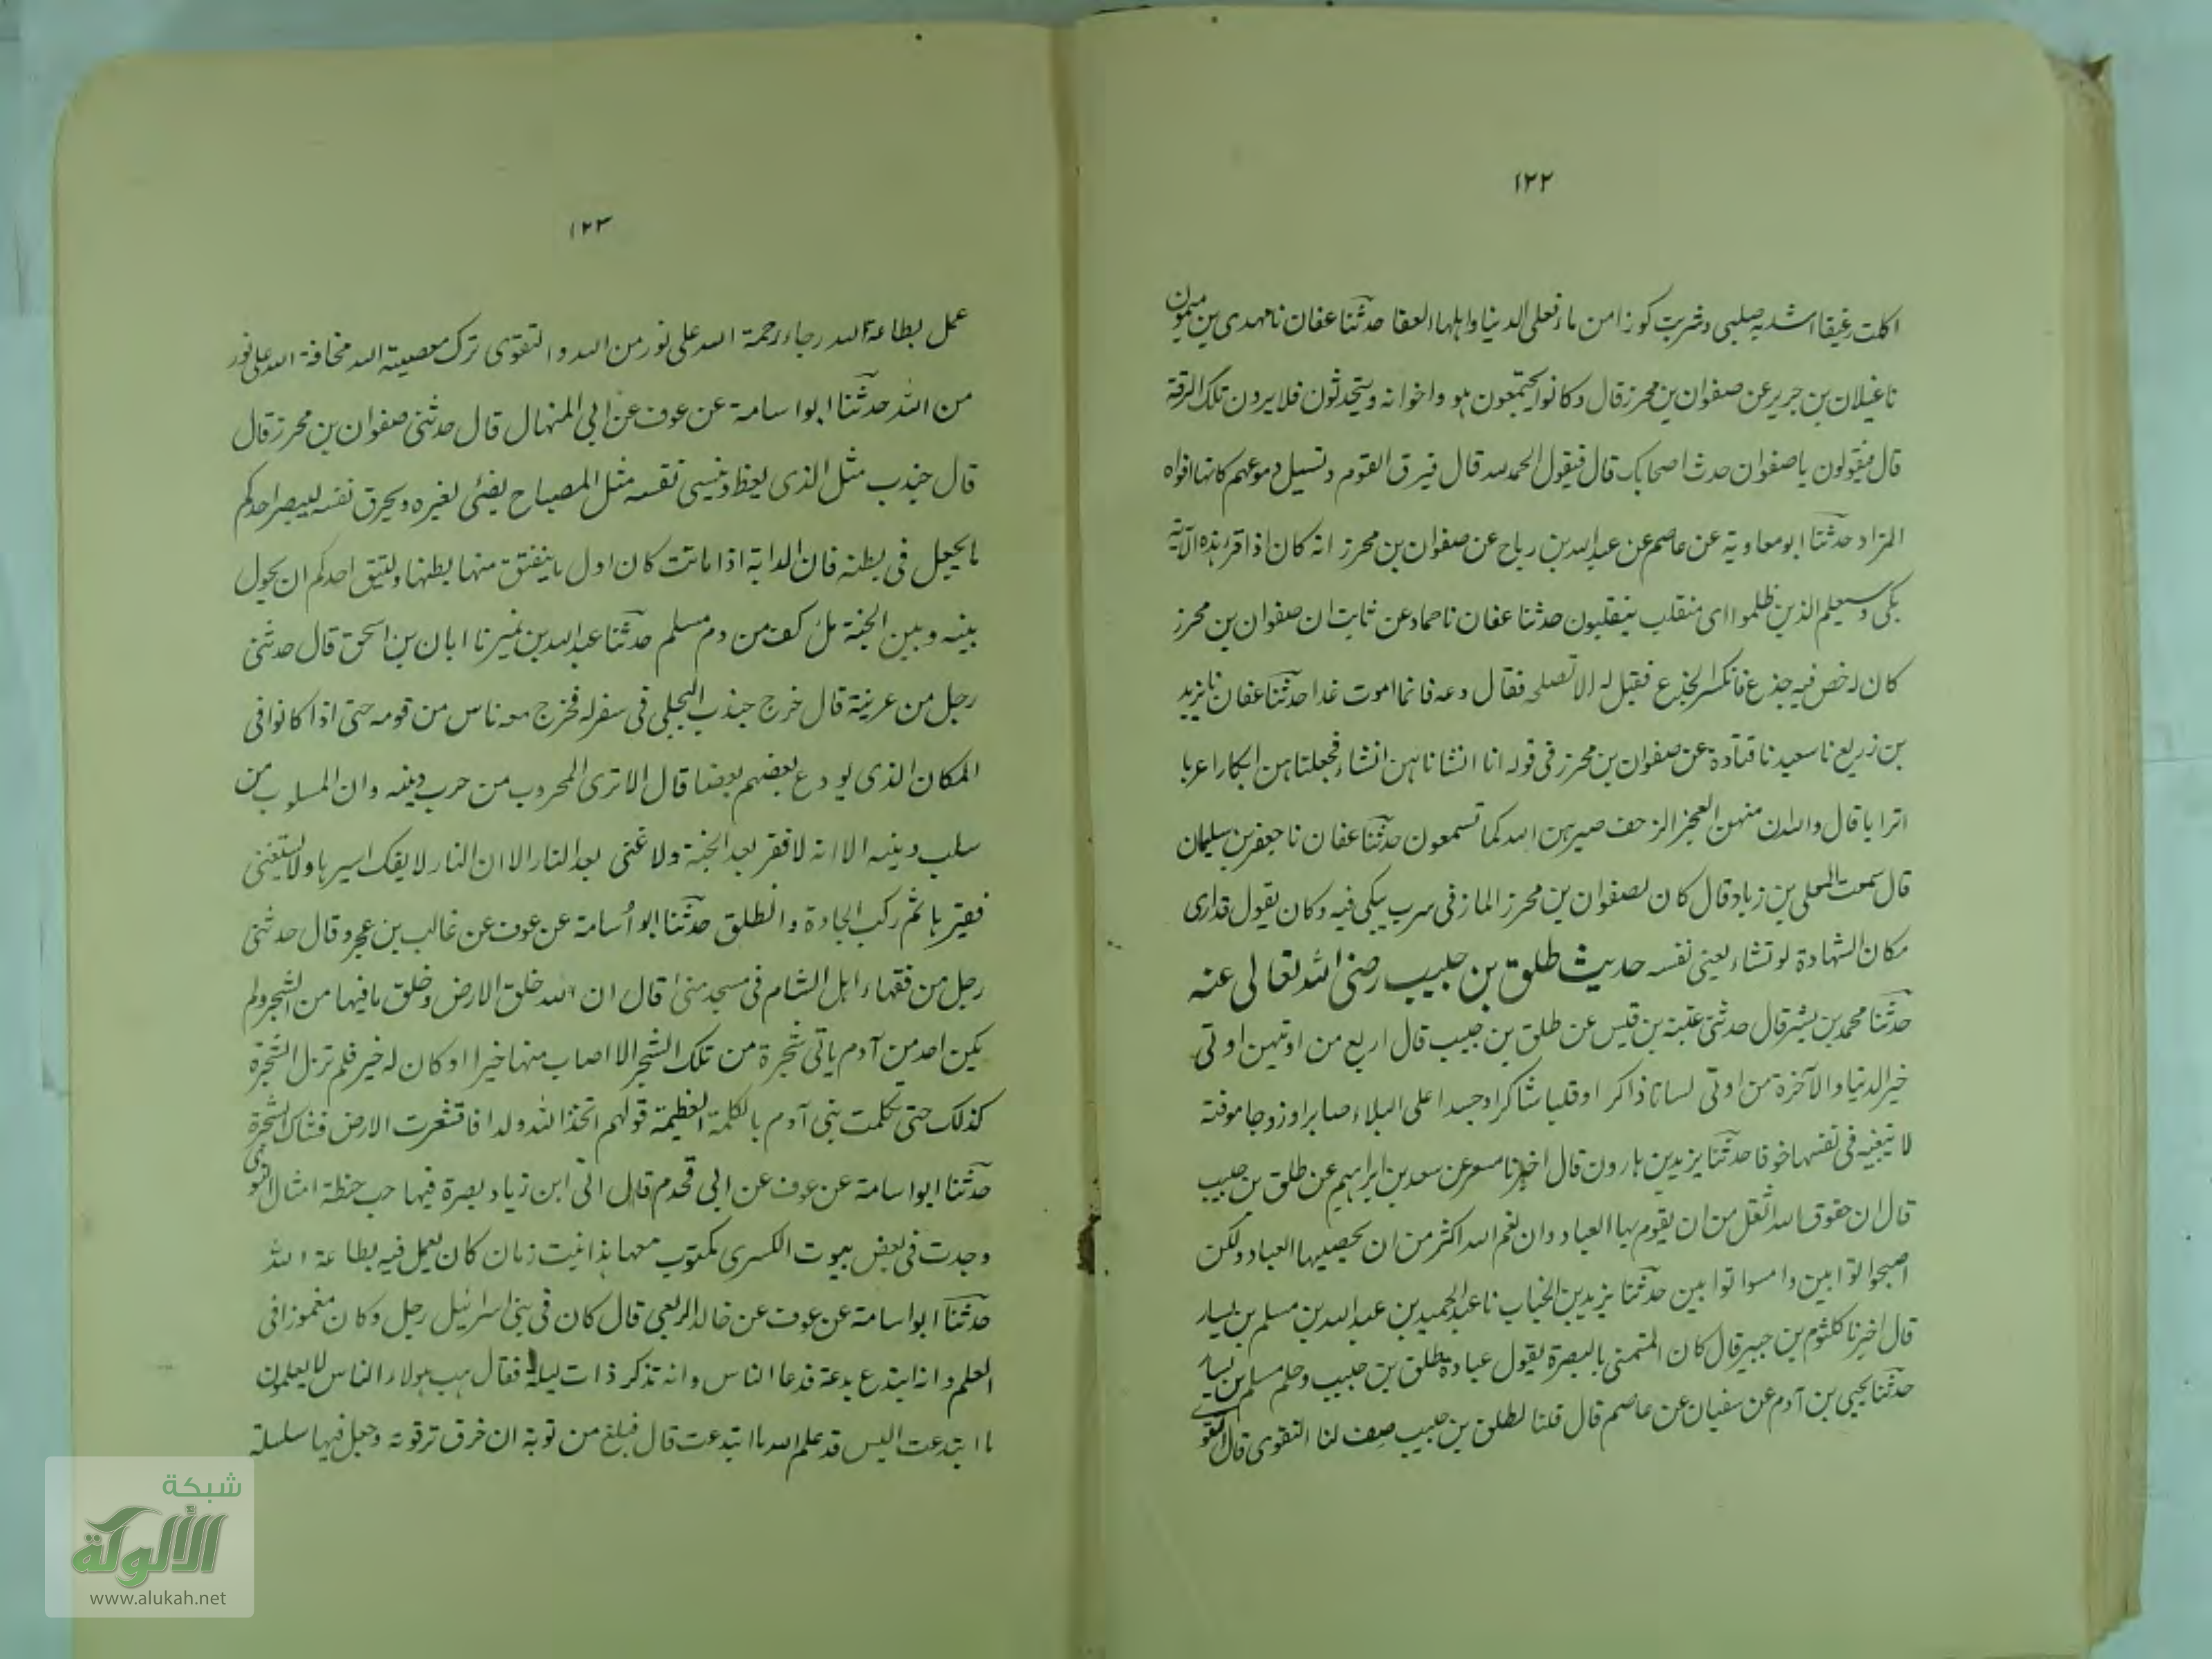 ١٢٢
اكلت رغيفا اشد به صلبى وشربت كوزا من ماء فعلى الدنيا واهلها العفا حدثنا عفان نا مهدى بن ميمون
نا غيلان بن جرير عن صفوان بن محرز قال وكانوا يجتمعون هو واخوانه ويتحدثون فلا يرون تلك الرقة
قال فيقولون يا صفوان حدث اصحابك قال فيقول الحمد لله قال فيرق القوم وتسيل دموعهم كانها افواه
المزاد حدثنا ابو معاوية عن عاصم عن عبد الله بن رباح عن صفوان بن محرز انه كان اذا قرء هذه الآية
بكى وسيعلم الذين ظلموا اى منقلب ينقلبون حدثنا عفان نا حماد عن ثابت ان صفوان بن محرز
كان له خص فيه جذع فانكسر الجذع فقيل له الا تصلحه فقال دعه فانما اموت غدا حدثنا عفان نا يزيد
بن زريع نا سعيد نا قتادة عن صفوان بن محرز فى قوله انا انشاناهن انشاء فجعلناهن ابكارا عربا
اترابا قال والله ان منهن العجز الزحف صيرهن الله كما تسمعون حدثنا عفان نا جعفر بن سليمان
قال سمعت المعلى بن زياد قال كان لصفوان بن محرز المازنى سرب يبكى فيه وكان يقول قد ارى
مكان الشهادة لو تشاء يعنى نفسه حديث طلق بن حبيب رضى الله تعالى عنه
حدثنا محمد بن بشر قال حدثنى عتبة بن قيس عن طلق بن حبيب قال اربع من اوتيهن اوتى
خير الدنيا والآخرة من اوتى لسانا ذاكرا وقلبا شاكرا وجسدا على البلاء صابرا وزوجا موفتة
لا تبغيه فى نفسها خوفا حدثنا يزيد بن هارون قال اخبرنا مسعر عن سعد بن ابراهيم عن طلق بن حبيب
قال ان حقوق الله اثقل من ان يقوم بها العباد وان نعم الله اكثر من ان يحصيها العباد ولكن
اصبحوا توابين وامسوا توابين حدثنا يزيد بن الحباب نا عبد الحميد بن عبد الله بن مسلم بن يسار
قال اخبرنا كلثوم بن جبير قال كان المتمنى بالبصرة يقول عبادة طلق بن حبيب وحلم مسلم بن يسار
حدثنا يحيى بن آدم عن سفيان عن عاصم قال قلنا لطلق بن حبيب صف لنا التقوى قال التقوى
١٢٣
عمل بطاعة الله رجاء رحمة الله على نور من الله والتقوى ترك معصية الله مخافة الله على نور
من الله حدثنا ابو اسامة عن عوف عن ابى المنهال قال حدثنى صفوان بن محرز قال
قال جندب مثل الذى يعظ وينسى نفسه مثل المصباح يضئى لغيره ويحرق نفسه ليبصر احدكم
ما يجعل فى بطنه فان الدابة اذا ماتت كان اول ما ينفتق منها بطنها وليتق احدكم ان يحول
بينه وبين الجنة مل كف من دم مسلم حدثنا عبد الله بن نمير نا ابان بن اسحق قال حدثنى
رجل من عرينة قال خرج جندب البجلى فى سفر له فخرج معه ناس من قومه حتى اذا كانوا فى
المكان الذى يودع بعضهم بعضا قال الا ترى المحروب من حرب دينه وان المسلوب من
سلب دينه الا انه لا فقر بعد الجنة ولا غنى بعد النار الا ان النار لا يفك اسيرها ولا يستغنى
فقيرها ثم ركب الجادة وانطلق حدثنا ابو أسامة عن عوف عن غالب بن عجرد قال حدثنى
رجل من فقهاء اهل الشام فى مسجد منى قال ان الله خلق الارض وخلق ما فيها من الشجر ولم
يكن احد من آدم ياتى شجرة من تلك الشجر الا اصاب منها خيرا او كان له خير فلم تزل الشجرة
كذلك حتى تكلمت بنى آدم بالكلمة العظيمة قولهم اتخذ الله ولدا فاقشعرت الارض فشاك الشجرة
حدثنا ابو اسامة عن عوف عن ابى قحدم قال اتى ابن زياد بصرة فيها حب حنطة امثال النوى
وجدت فى بعض بيوت الكسرى مكتوب معها هذا نبت زمان كان يعمل فيه بطاعة الله
حدثنا ابو اسامة عن عوف عن خالد الربعى قال كان فى بنى اسرئيل رجل وكان مغموزا فى
العلم وانه ابتدع بدعة فدعا الناس وانه تذكر ذات ليلة فقال هب هولاء الناس لا يعلمون
ما ابتدعت اليس قد علم الله ما ابتدعت قال فبلغ من توبة ان خرق ترقوته وجعل فيها سلسلة
شبكة
الألوكة
www.alukah.net